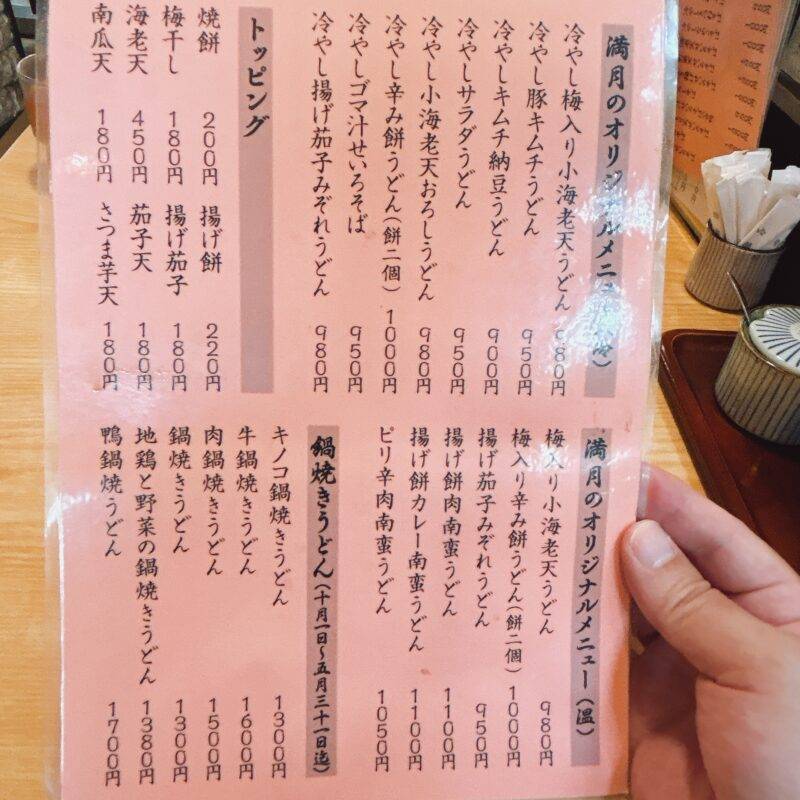 満月のオリジナルメニュー（冷）
冷やし梅入り小海老天うどん 980円
冷やし豚キムチうどん 950円
冷やしキムチ納豆うどん 900円
冷やしサラダうどん 950円
冷やし小海老天おろしうどん 980円
冷やし辛み餅うどん（餅二個） 1000円
冷やしゴマ汁せいろそば 950円
冷やし揚げ茄子みぞれうどん 980円
トッピング
焼餅 200円 揚げ餅 220円
梅干し 180円 揚げ茄子 180円
海老天 450円 茄子天 180円
南瓜天 180円 さつま芋天 180円
満月のオリジナルメニュー（温）
梅入り小海老天うどん 980円
梅入り辛み餅うどん（餅二個） 1000円
揚げ茄子みぞれうどん 950円
揚げ餅肉南蛮うどん 1100円
揚げ餅カレー南蛮うどん 1100円
ピリ辛肉南蛮うどん 1050円
鍋焼きうどん（十月一日～五月三十一日迄）
キノコ鍋焼きうどん 1300円
牛鍋焼きうどん 1600円
肉鍋焼きうどん 1500円
鍋焼きうどん 1300円
地鶏と野菜の鍋焼きうどん 1380円
鴨鍋焼うどん 1700円